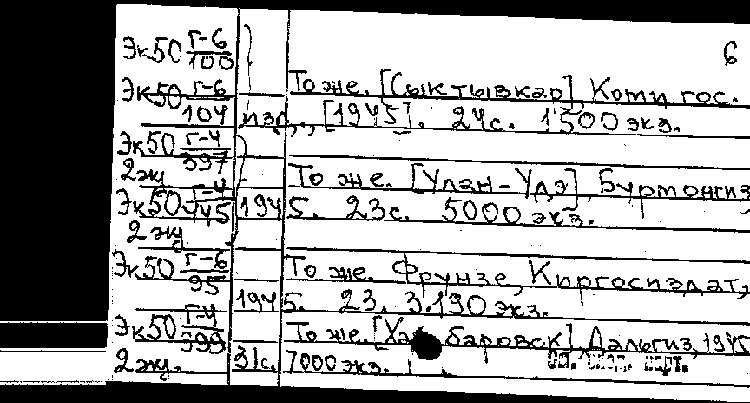 6
Эк50 Г-6/100
Эк50 Г-6/104 То же. [Сыктывкар], Коми гос.
изд., [1945]. 24с. 1500 экз.
Эк50 Г-4/397
2 экз То же. [Улан-Удэ], Бурмонгиз,
Эк50 Г-4/445 1945. 23с. 5000 экз.
2 экз
Эк50 Г-6/95 То же. Фрунзе, Киргосиздат,
1945. 23. 3.190 экз.
Эк50 Г-4/399 То же. [Ха баровск], Дальгиз, 1945
2 экз. 31с. 7000 экз.